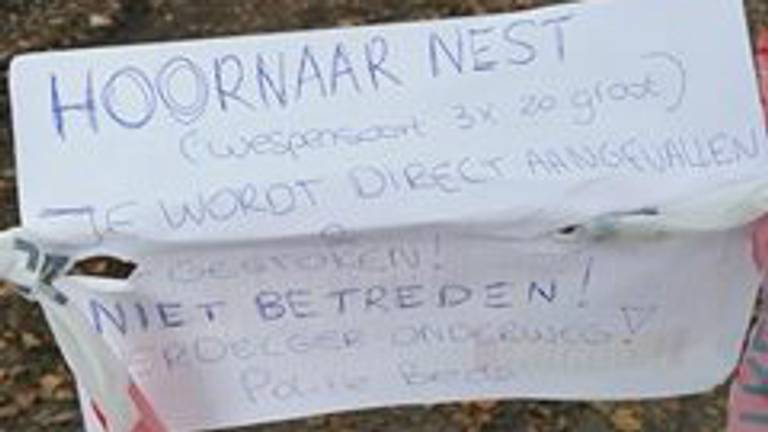 HOORNAAR NEST
(Wespensoort 3x zo groot)
JE WORDT DIRECT AANGEVALLEN
BESTOKEN!
NIET BETREDEN!
ONDERWEG!